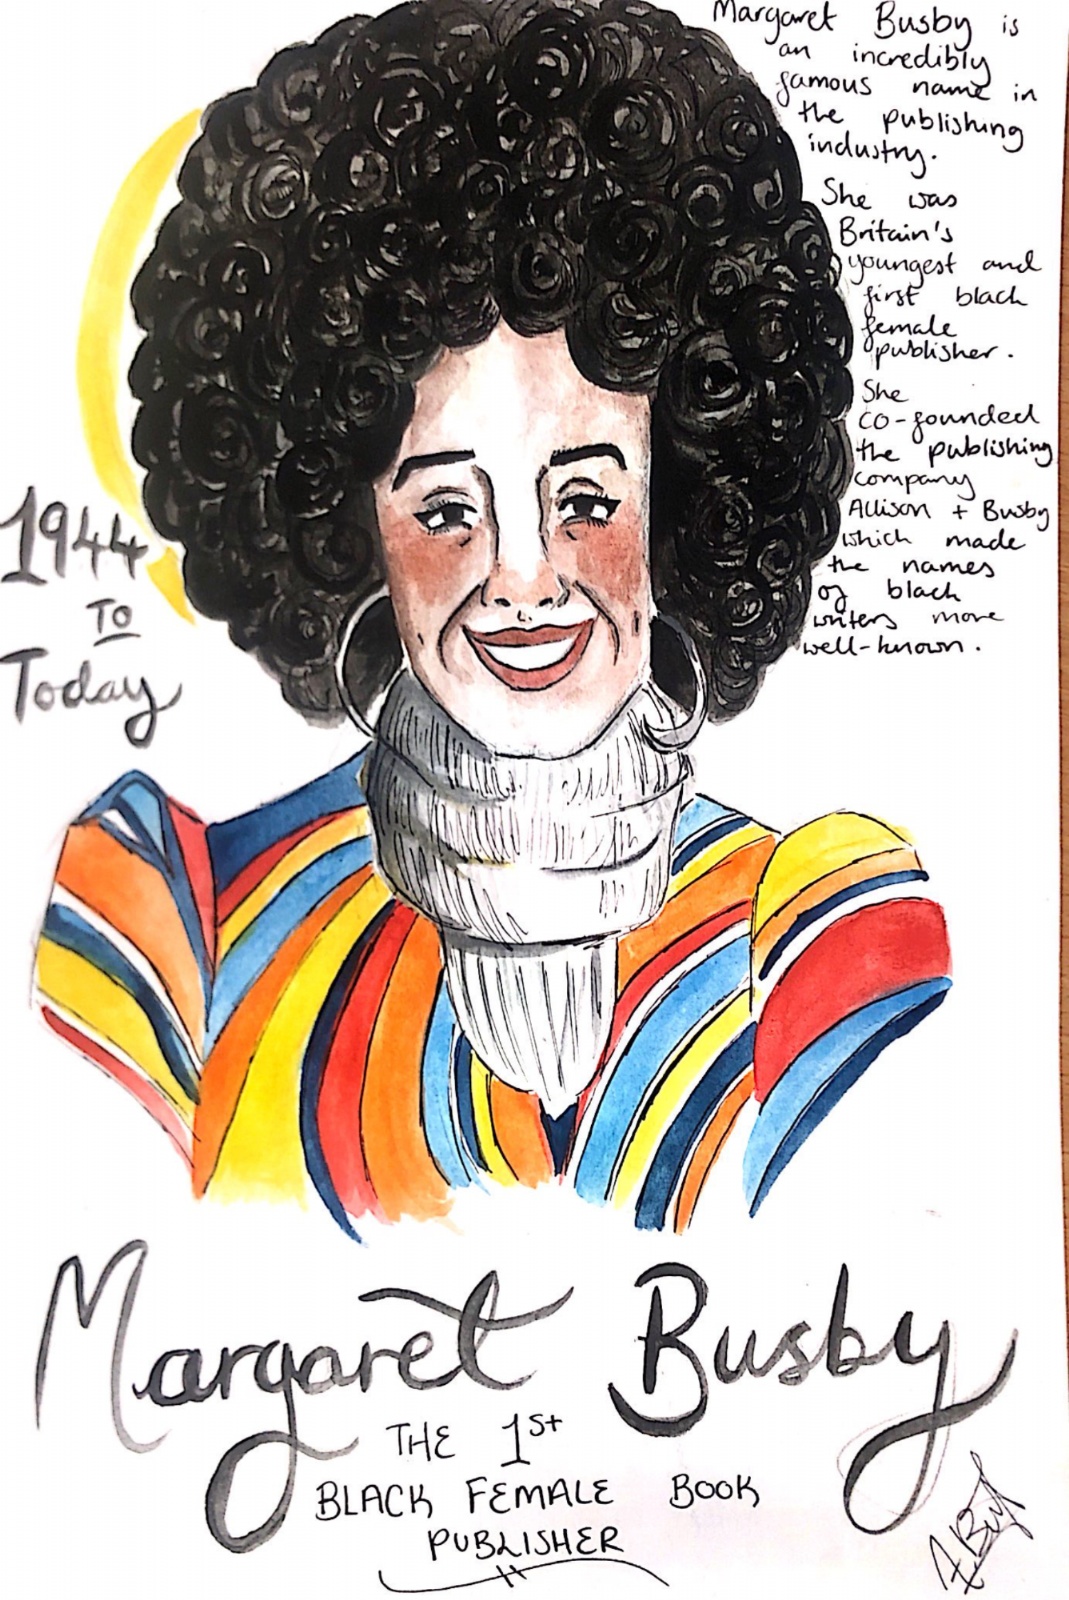 Margaret Busby is
an incredibly
famous name in
the publishing
industry.
She was
Britain's
youngest and
first black
female
publisher.
She
co-founded
the publishing
company
Allison + Busby
which made
the names
of black
writers more
well-known.
1944
TO
Today
Margaret Busby
THE 1st
BLACK FEMALE BOOK
PUBLISHER